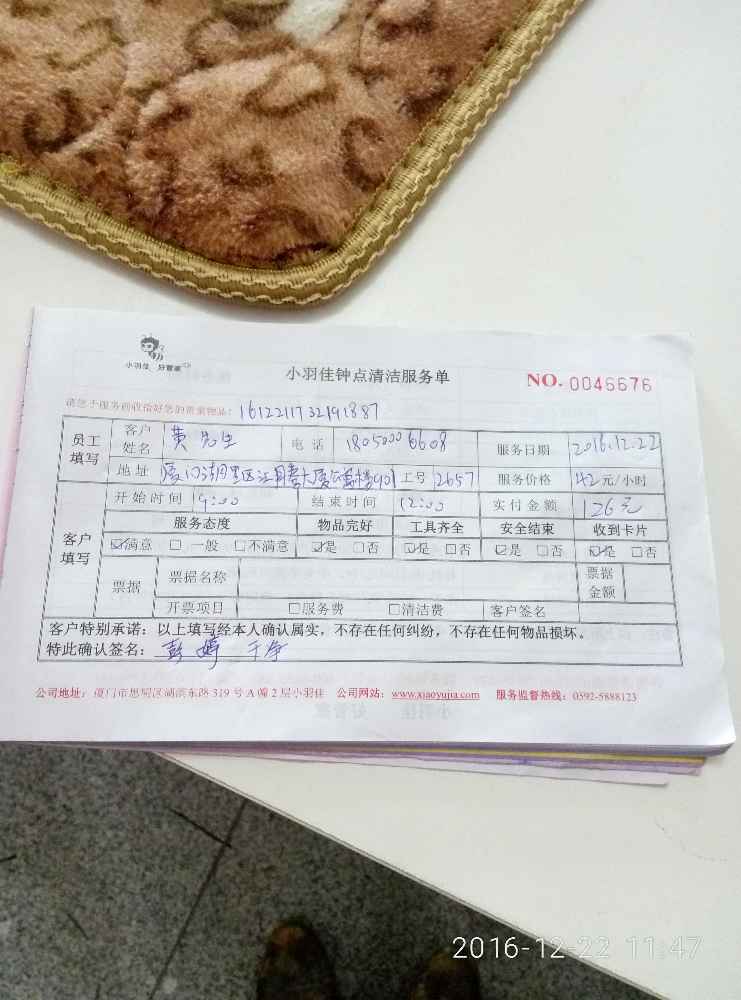 小羽佳 好管家
小羽佳钟点清洁服务单
NO. 0046676
请您于服务前收拾好您的贵重物品: 1612211732191887
员工填写 客户姓名 黄先生 电话 18050006608 服务日期 2016.12.22
地址 厦门湖里区 大厦 901 工号 2657 服务价格 42元/小时
客户填写 开始时间 9:00 结束时间 12:00 实付金额 126元
服务态度 物品完好 工具齐全 安全结束 收到卡片
☑满意 □一般 □不满意 ☑是 □否 ☑是 □否 ☑是 □否 ☑是 □否
票据 票据名称 票据金额
开票项目 □服务费 □清洁费 客户签名
客户特别承诺:以上填写经本人确认属实,不存在任何纠纷,不存在任何物品损坏。
特此确认签名: 彭婷 干净
公司地址:厦门市思明区湖滨东路319号A幢2层小羽佳 公司网站:www.xiaoyujia.com 服务监督热线:0592-5888123
2016-12-22 11:47